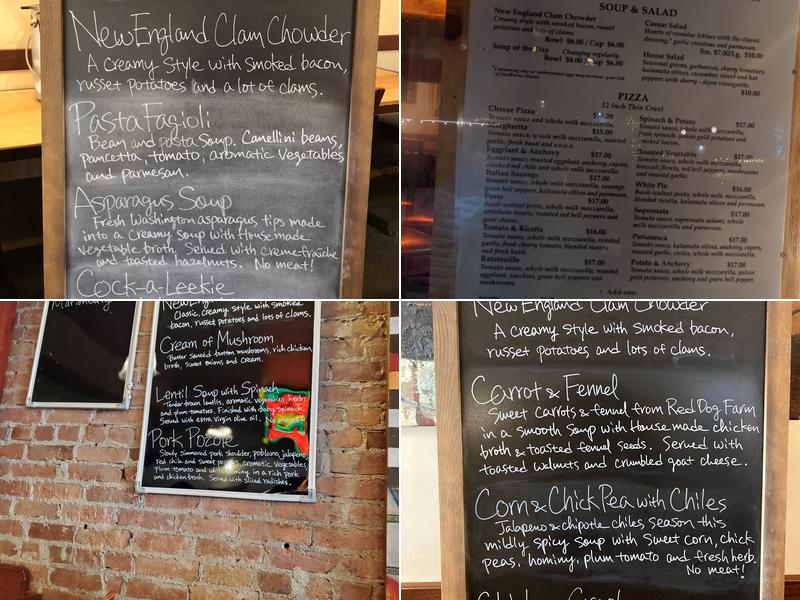 New England Clam Chowder
A Creamy Style with Smoked bacon,
russet potatoes and a lot of clams.
Pasta Fagioli
Bean and pasta Soup. Canellini beans,
pancetta, tomato, aromatic vegetables
and parmesan.
Asparagus Soup
Fresh Washington asparagus tips made
into a Creamy Soup with House made
vegetable broth. Served with creme fraiche
and toasted hazelnuts. No meat!
Cock-a-Leekie
SOUP & SALAD
New England Clam Chowder
Creamy style with smoked bacon, russet
potatoes and lots of clams.
Bowl $8.00 / Cup $6.00
Soup of the Day Changing regularly.
Bowl $8.00 / Cup $6.00
Caesar Salad
Hearts of romaine lettuce with the classic
dressing, garlic croutons and parmesan.
Sm. $7.00/Lg. $10.00
House Salad
Seasonal greens, garbanzos, cherry tomatoes,
kalamata olives, cucumber, sweet and hot
peppers with sherry - dijon vinaigrette.
$10.00
PIZZA
12 inch Thin Crust
Cheese Pizza
Tomato sauce and whole milk mozzarella.
Margherita $15.00
Tomato sauce, whole milk mozzarella, roasted
garlic, fresh basil and e.v.o.o.
Eggplant & Anchovy $17.00
Tomato sauce, roasted eggplant, anchovy, capers,
crushed red chile and whole milk mozzarella.
Italian Sausage $17.00
Tomato sauce, whole milk mozzarella, sausage,
green bell peppers, kalamata olives and parmesan.
Pesto $17.00
Basil-walnut pesto, whole milk mozzarella,
artichoke hearts, roasted red bell peppers and
goat cheese.
Tomato & Ricotta $16.00
Tomato sauce, whole milk mozzarella, roasted
garlic, fresh cherry tomato, blended ricotta
and fresh basil.
Ratatouille $17.00
Tomato sauce, whole milk mozzarella, roasted
eggplant, zucchini, green bell peppers and
mushrooms.
Spinach & Potato $17.00
Tomato sauce, whole milk mozzarella,
fresh spinach, yukon gold potatoes and
smoked bacon.
Roasted Vegetable $17.00
Tomato sauce, whole milk mozzarella,
broccoli florets, red bell peppers,
White Pie $16.00
Basil-walnut pesto, whole milk mozzarella,
blended ricotta, kalamata olives and parmesan.
Sopressata $17.00
Tomato sauce, sopressata salami, whole
milk mozzarella and parmesan.
Puttanesca $17.00
Tomato sauce, kalamata olives, anchovy, capers,
roasted garlic, chiles, whole milk mozzarella.
Potato & Anchovy $17.00
Tomato sauce, whole milk mozzarella, yukon
gold potatoes, anchovy, green bell peppers.
Add-ons:
Classic, creamy style with smoked
bacon, russet potatoes and lots of clams.
Cream of Mushroom
Butter Sauteed button mushrooms, rich chicken
broth, sweet onions and Cream.
Lentil Soup with Spinach
Tender brown lentils, aromatic vegetables, herbs
and plum tomatoes. Finished with baby Spinach.
Served with extra Virgin olive oil. No meat
Pork Pozole
Slowly Simmered pork shoulder, poblano, jalapeno
red chile and sweet peppers, aromatic vegetables
Plum tomato and white hominy in a rich pork
and chicken broth. Served with sliced radishes.
New England Clam Chowder
A Creamy Style with Smoked bacon,
russet potatoes and lots of clams.
Carrot & Fennel
Sweet Carrots & fennel from Red Dog Farm
in a smooth Soup with House made chicken
broth & toasted fennel seeds. Served with
toasted walnuts and crumbled goat cheese.
Corn & Chick Pea with Chiles
Jalapeno & chipotle chiles season this
mildly spicy soup with sweet corn, chick
peas, hominy, plum tomato and fresh herb.
No meat!